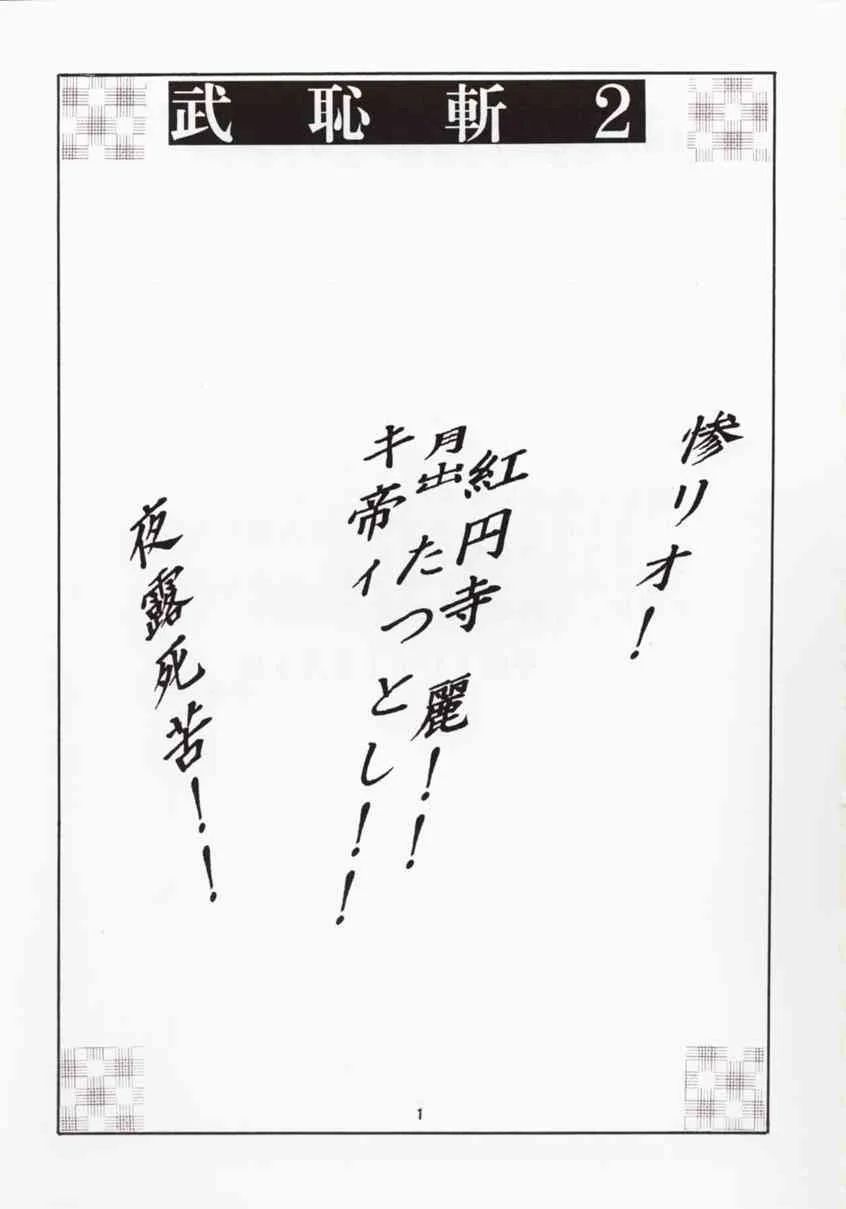 武恥斬2
惨リオ!
紅円寺 麗!!
月出たつとし!!
キ帝ィ
夜露死苦!!
1